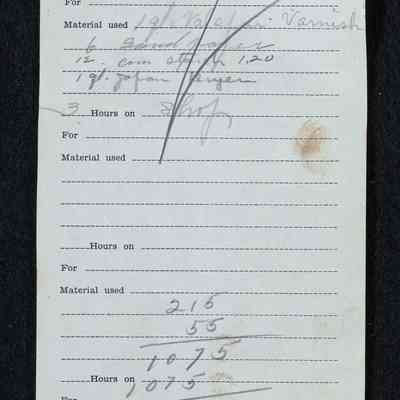 For
Material used 1 qt. Varnish
6 Sand paper
12 corn starch 1.20
1 qt. Japan Dryer
3 Hours on Shop
For
Material used
Hours on
For
Material used
215
55
1075
Hours on 1075
For